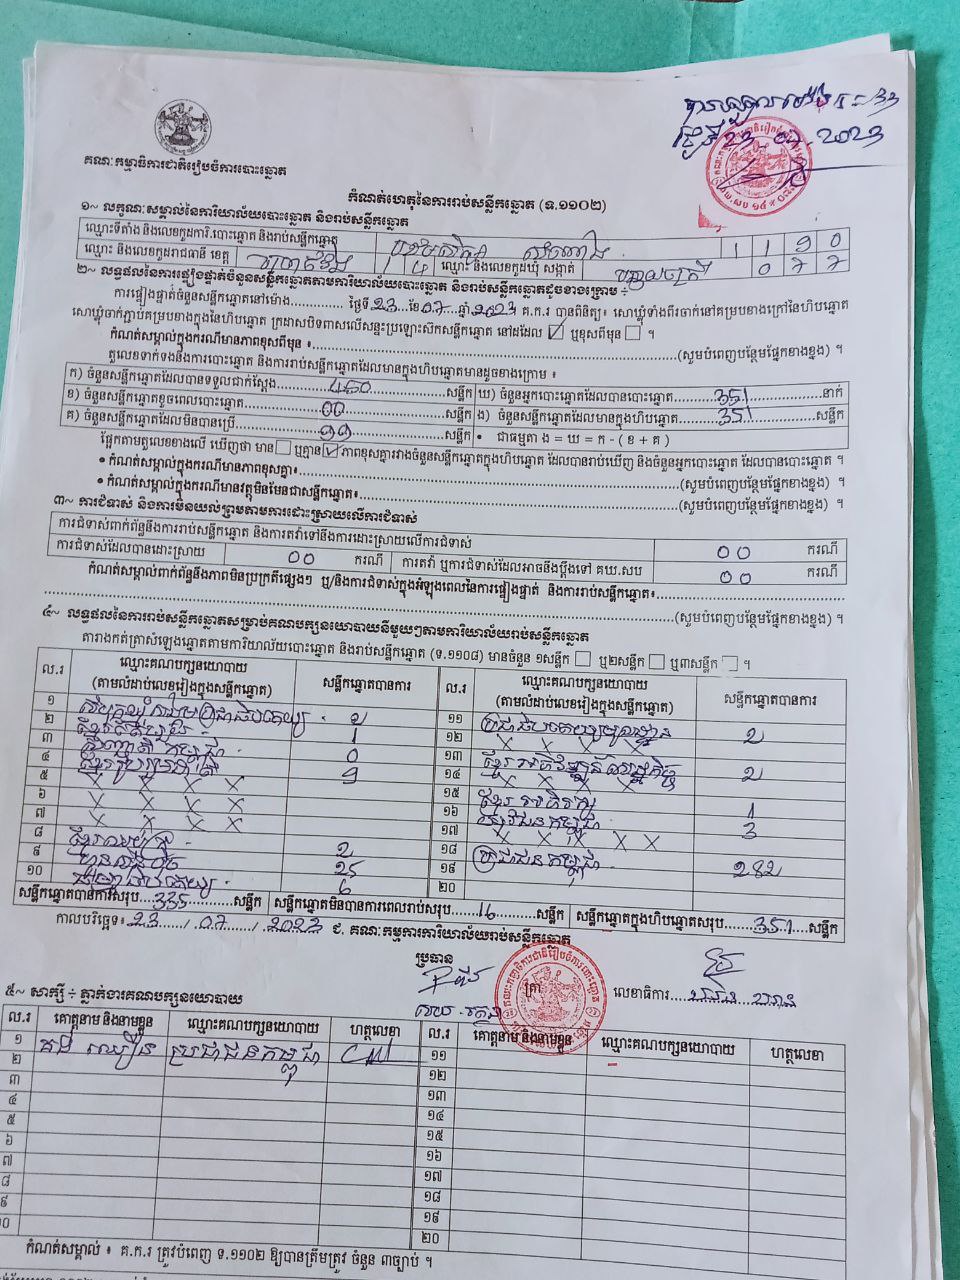 គណៈកម្មាធិការជាតិរៀបចំការបោះឆ្នោត
កំណត់ហេតុនៃការរាប់សន្លឹកឆ្នោត (ទ.១១០២)
23 07 . 2023
១~ លក្ខណៈសម្គាល់នៃការិយាល័យបោះឆ្នោត និងរាប់សន្លឹកឆ្នោត
ឈ្មោះទីតាំង និងលេខកូដការិ.បោះឆ្នោត និងរាប់សន្លឹកឆ្នោត 1 1 9 0
ឈ្មោះ និងលេខកូដរាជធានី ខេត្ត 1 4 ឈ្មោះ និងលេខកូដឃុំ សង្កាត់ 0 7 7
២~ លទ្ធផលនៃការផ្ទៀងផ្ទាត់ចំនួនសន្លឹកឆ្នោតតាមការិយាល័យបោះឆ្នោត និងរាប់សន្លឹកឆ្នោតដូចខាងក្រោម ÷
ការផ្ទៀងផ្ទាត់ចំនួនសន្លឹកឆ្នោតនៅម៉ោង............... ថ្ងៃទី23 ខែ07 ឆ្នាំ2023 គ.ក.រ បានពិនិត្យ៖ សោឃ្លុំទាំងពីរចាក់នៅគម្របខាងក្រៅនៃហិបឆ្នោត
សោឃ្លុំចាក់ភ្ជាប់គម្របខាងក្នុងនៃហិបឆ្នោត ក្រដាសបិទពាសលើសន្ទះប្រឡោះស៊កសន្លឹកឆ្នោត នៅដដែល ☑ ឬខុសពីមុន ☐ ។
កំណត់សម្គាល់ក្នុងករណីមានភាពខុសពីមុន ៖..............................(សូមបំពេញបន្ថែមផ្នែកខាងខ្នង) ។
តួលេខទាក់ទងនឹងការបោះឆ្នោត និងការរាប់សន្លឹកឆ្នោតដែលមានក្នុងហិបឆ្នោតមានដូចខាងក្រោម ៖
ក) ចំនួនសន្លឹកឆ្នោតដែលបានទទួលជាក់ស្តែង.........450.........សន្លឹក ឃ) ចំនួនអ្នកបោះឆ្នោតដែលបានបោះឆ្នោត.........351.........នាក់
ខ) ចំនួនសន្លឹកឆ្នោតខូចពេលបោះឆ្នោត.........00.........សន្លឹក ង) ចំនួនសន្លឹកឆ្នោតដែលមានក្នុងហិបឆ្នោត.........351.........សន្លឹក
គ) ចំនួនសន្លឹកឆ្នោតដែលមិនបានប្រើ.........99.........សន្លឹក • ជាធម្មតា ង = ឃ = ក - ( ខ + គ )
ផ្អែកតាមតួលេខខាងលើ ឃើញថា មាន ☐ ឬគ្មាន ☑ ភាពខុសគ្នារវាងចំនួនសន្លឹកឆ្នោតក្នុងហិបឆ្នោត ដែលបានរាប់ឃើញ និងចំនួនអ្នកបោះឆ្នោត ដែលបានបោះឆ្នោត ។
• កំណត់សម្គាល់ក្នុងករណីមានភាពខុសគ្នា៖..............................(សូមបំពេញបន្ថែមផ្នែកខាងខ្នង) ។
• កំណត់សម្គាល់ក្នុងករណីមានវត្ថុមិនមែនជាសន្លឹកឆ្នោត៖..............................(សូមបំពេញបន្ថែមផ្នែកខាងខ្នង) ។
៣~ ការជំទាស់ និងការមិនយល់ព្រមតាមការដោះស្រាយលើការជំទាស់
ការជំទាស់ពាក់ព័ន្ធនឹងការរាប់សន្លឹកឆ្នោត និងការតវ៉ាទៅនឹងការដោះស្រាយលើការជំទាស់ 00 ករណី
ការជំទាស់ដែលបានដោះស្រាយ 00 ករណី ការតវ៉ា ឬការជំទាស់ដែលអាចនឹងប្តឹងទៅ គឃ.សប 00 ករណី
កំណត់សម្គាល់ពាក់ព័ន្ធនឹងភាពមិនប្រក្រតីផ្សេងៗ ឬ/និងការជំទាស់ក្នុងអំឡុងពេលនៃការផ្ទៀងផ្ទាត់ និងការរាប់សន្លឹកឆ្នោត៖..............................
..............................(សូមបំពេញបន្ថែមផ្នែកខាងខ្នង) ។
៤~ លទ្ធផលនៃការរាប់សន្លឹកឆ្នោតសម្រាប់គណបក្សនយោបាយនីមួយៗតាមការិយាល័យរាប់សន្លឹកឆ្នោត
តារាងកត់ត្រាសំឡេងឆ្នោតតាមការិយាល័យបោះឆ្នោត និងរាប់សន្លឹកឆ្នោត (ទ.១១០៨) មានចំនួន ១សន្លឹក ☐ ឬ២សន្លឹក ☐ ឬ៣សន្លឹក ☐ ។
ល.រ ឈ្មោះគណបក្សនយោបាយ (តាមលំដាប់លេខរៀងក្នុងសន្លឹកឆ្នោត) សន្លឹកឆ្នោតបានការ ល.រ ឈ្មោះគណបក្សនយោបាយ (តាមលំដាប់លេខរៀងក្នុងសន្លឹកឆ្នោត) សន្លឹកឆ្នោតបានការ
១ សំបុកឃ្មុំសង្គមប្រជាធិបតេយ្យ 2 ១១ ប្រជាធិបតេយ្យមូលដ្ឋាន 2
២ 1 ១២ X X X X
៣ កម្ពុជា 0 ១៣ ខ្មែរអភិវឌ្ឍន៍សេដ្ឋកិច្ច 2
៤ ខ្មែររួបរួមជាតិ 9 ១៤ X X X X
៥ X X X X ១៥ ខ្មែរអភិរក្ស 1
៦ X X X X ១៦ យុវជនកម្ពុជា 3
៧ X X X X ១៧ X X X X X
៨ 2 ១៨ ប្រជាជនកម្ពុជា 282
៩ ហ្វ៊ុនស៊ិនប៉ិច 25 ១៩
១០ 6 ២០
សន្លឹកឆ្នោតបានការសរុប....335.........សន្លឹក សន្លឹកឆ្នោតមិនបានការពេលរាប់សរុប.......16.........សន្លឹក សន្លឹកឆ្នោតក្នុងហិបឆ្នោតសរុប.......351....សន្លឹក
កាលបរិច្ឆេទ៖ 23 / 07 / 2023 ជ. គណៈកម្មការការិយាល័យរាប់សន្លឹកឆ្នោត
ប្រធាន
ត្រា លេខាធិការ
៥~ សាក្សី ÷ ភ្នាក់ងារគណបក្សនយោបាយ
ល.រ គោត្តនាម និងនាមខ្លួន ឈ្មោះគណបក្សនយោបាយ ហត្ថលេខា ល.រ គោត្តនាម និងនាមខ្លួន ឈ្មោះគណបក្សនយោបាយ ហត្ថលេខា
១ ប្រជាជនកម្ពុជា ១១
២ ១២
៣ ១៣
៤ ១៤
៥ ១៥
៦ ១៦
៧ ១៧
៨ ១៨
៩ ១៩
១០ ២០
កំណត់សម្គាល់ ៖ គ.ក.រ ត្រូវបំពេញ ទ.១១០២ ឱ្យបានត្រឹមត្រូវ ចំនួន ៣ច្បាប់ ។